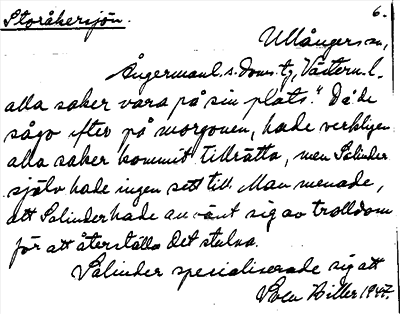 Storåkersjön.
6.
Ullångers sn,
Ångermanl. s. doms. tg, Västernl. l.
alla saker vara på sin plats." Då de
sågo efter på morgonen, hade verkligen
alla saker kommit tillrätta, men Salinder
själv hade ingen sett till. Man menade,
att Salinder hade använt sig av trolldom
för att återställa det stulna.
Salinder specialiserade sig att
Sven Hiller 1947.